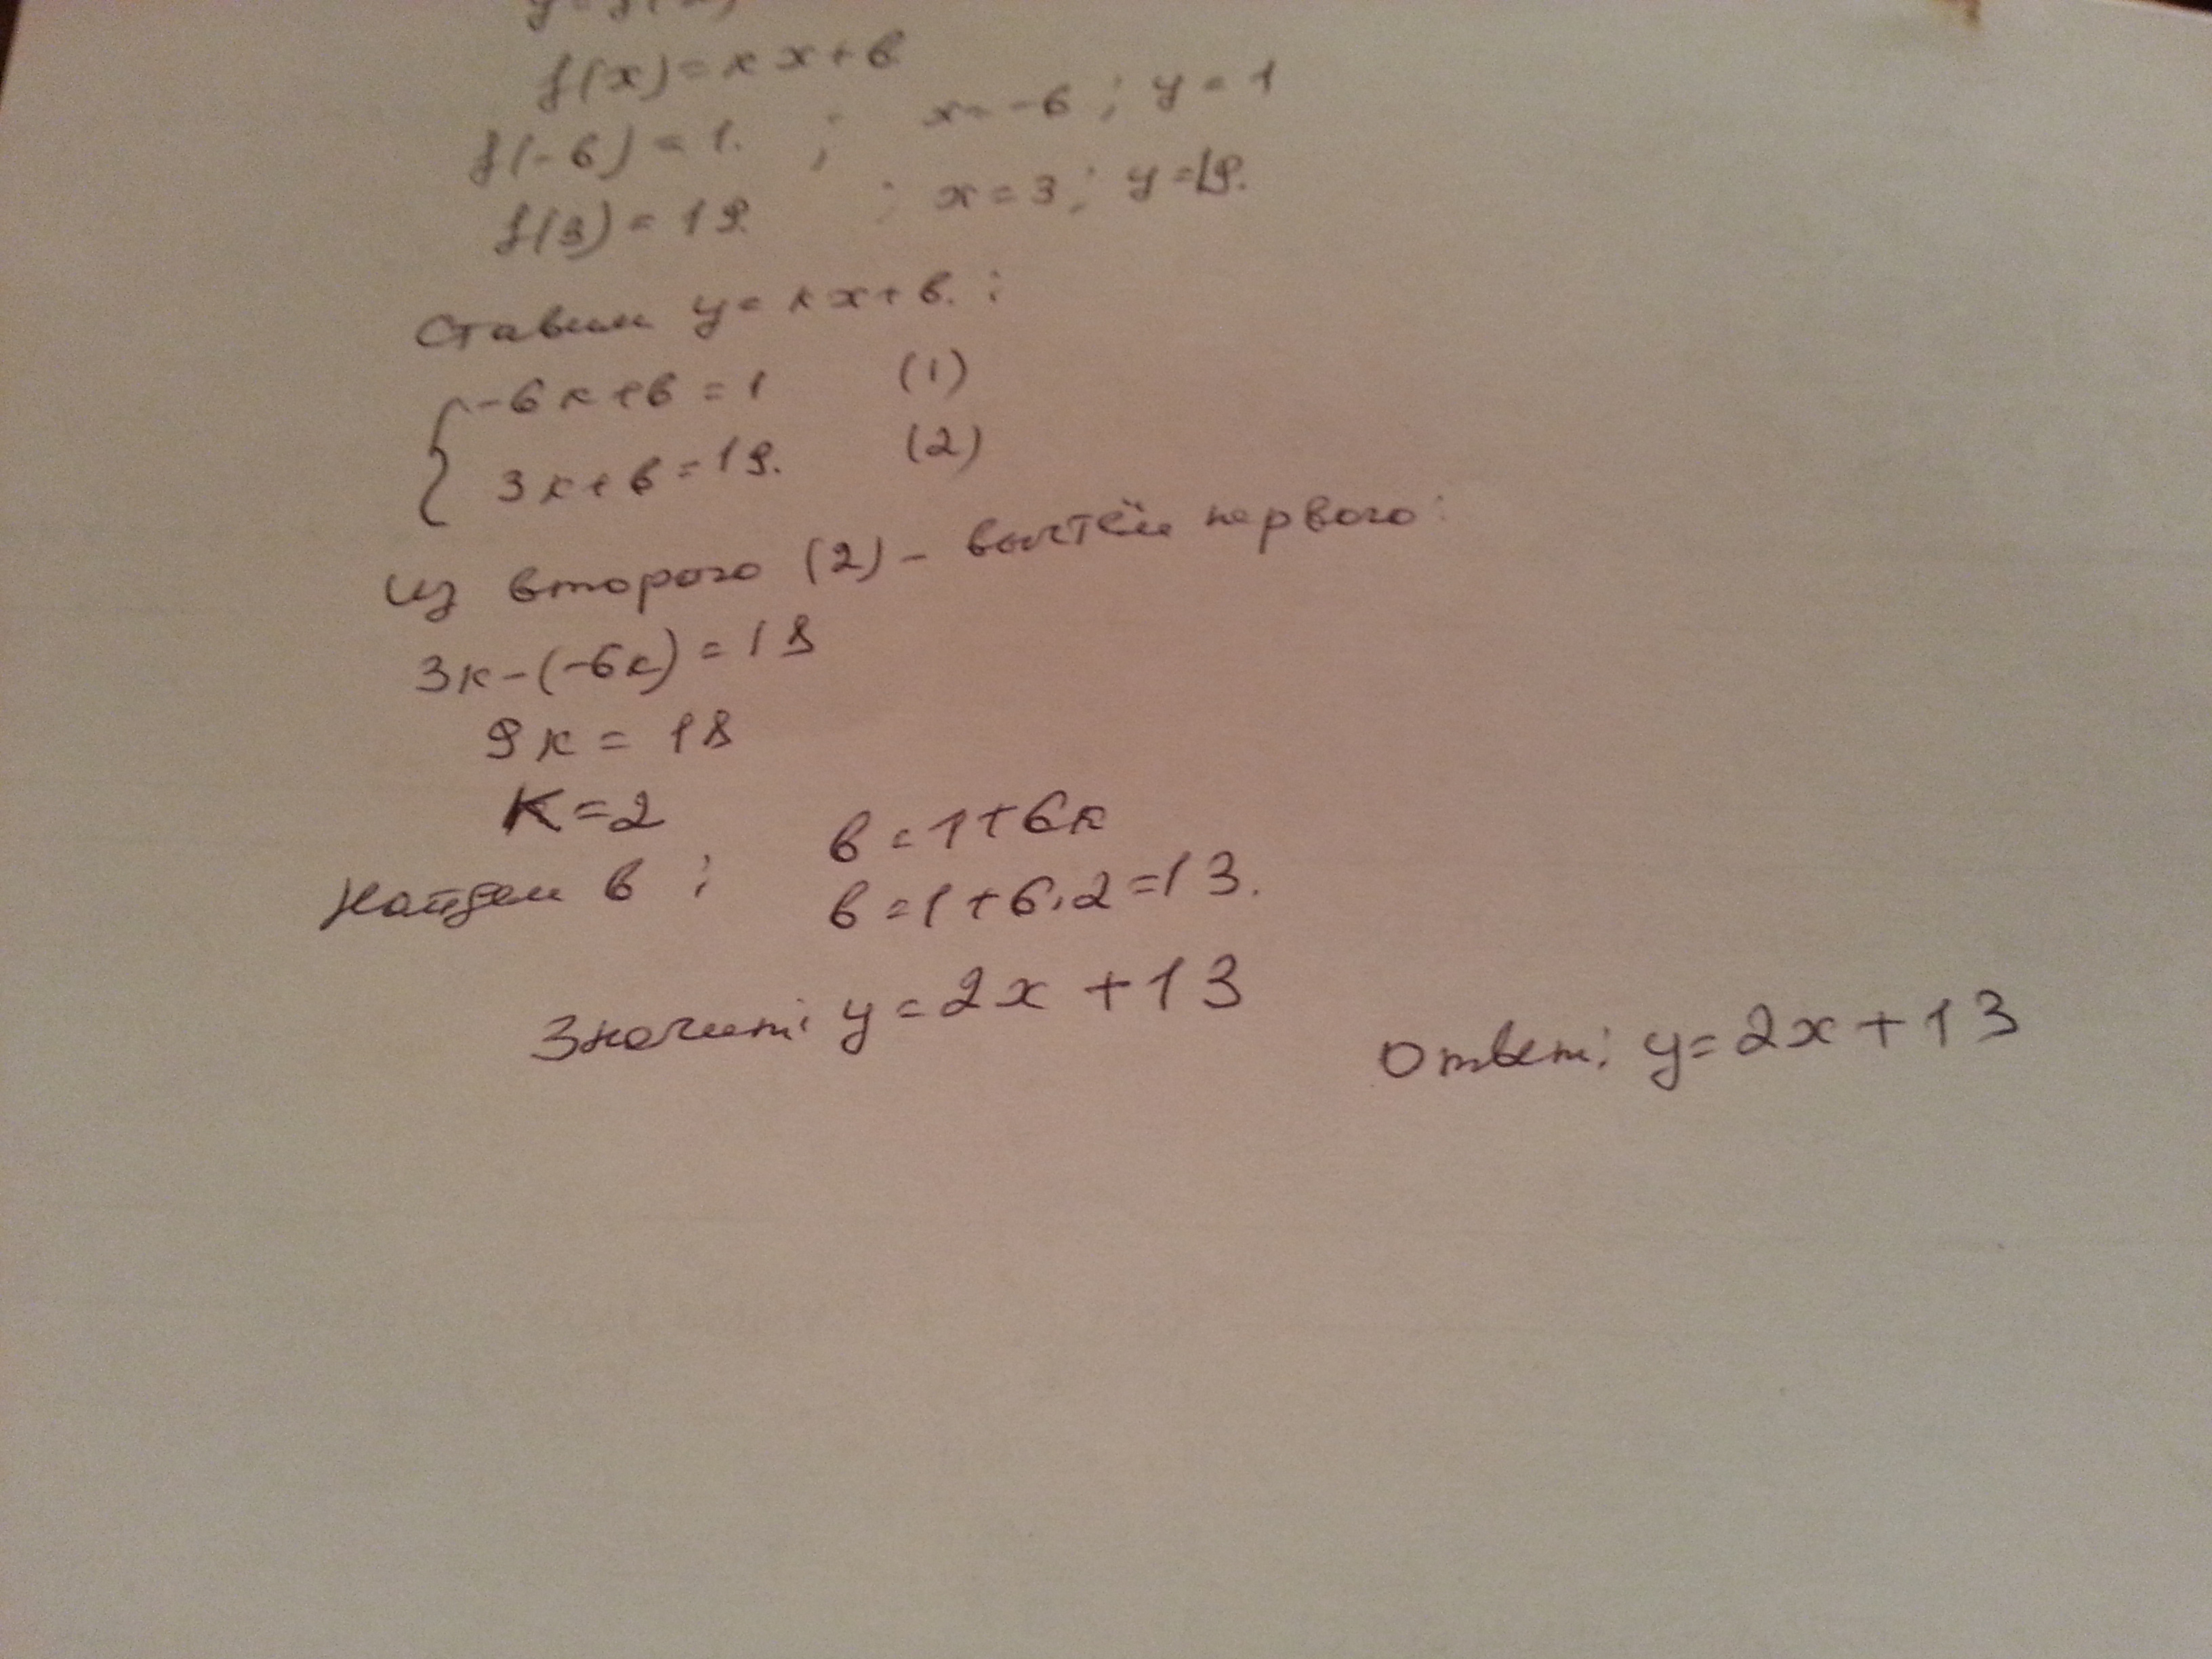 f(x)=кx+в
f(-6)=1. ; x=-6; y=1
f(3)=19. ; x=3; y=19.
Ставим y=кx+в. :
-6к+в=1 (1)
3к+в=19. (2)
Из второго (2) - вычтём первого:
3к-(-6к)=18
9к=18
К=2
в=1+6к
Найдем в :
в=1+6·2=13.
Значит: y=2x+13
Ответ: y=2x+13